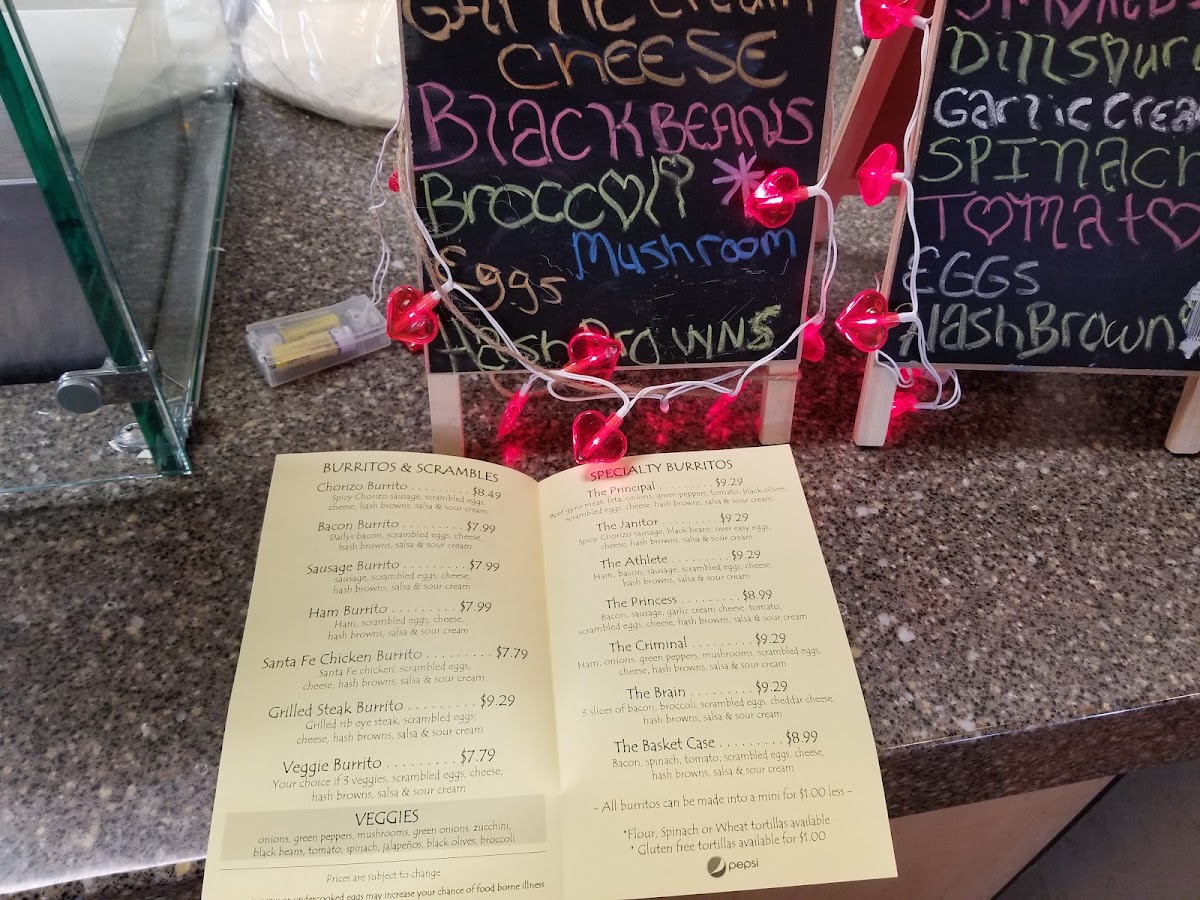 Garlic Cream
CHEESE
Black BEANS
Broccoli
Mushroom
Eggs
HashBrowns
Dillspur
Garlic Crea
SPINach
TOMATO
EGGs
HashBrown
BURRITOS & SCRAMBLES
Chorizo Burrito . . . . . . . . . $8.49
Spicy Chorizo sausage, scrambled eggs,
cheese, hash browns, salsa & sour cream
Bacon Burrito . . . . . . . . . $7.99
Dailys bacon, scrambled eggs, cheese,
hash browns, salsa & sour cream
Sausage Burrito . . . . . . . . . $7.99
sausage, scrambled eggs, cheese,
hash browns, salsa & sour cream
Ham Burrito . . . . . . . . . $7.99
Ham, scrambled eggs, cheese,
hash browns, salsa & sour cream
Santa Fe Chicken Burrito . . . . . . . . . $7.79
Santa Fe chicken, scrambled eggs,
cheese, hash browns, salsa & sour cream
Grilled Steak Burrito . . . . . . . . . $9.29
Grilled rib eye steak, scrambled eggs,
cheese, hash browns, salsa & sour cream
Veggie Burrito . . . . . . . . . $7.79
Your choice if 3 veggies, scrambled eggs, cheese,
hash browns, salsa & sour cream
VEGGIES
onions, green peppers, mushrooms, green onions, zucchini,
black beans, tomato, spinach, jalapeños, black olives, broccoli
Prices are subject to change
or undercooked eggs may increase your chance of food borne illness
SPECIALTY BURRITOS
The Principal . . . . . . . . . $9.29
Beef gyro meat, feta, onions, green peppers, tomato, black olives,
scrambled eggs, cheese, hash browns, salsa & sour cream
The Janitor . . . . . . . . . $9.29
Spicy Chorizo sausage, black beans, over easy eggs,
cheese, hash browns, salsa & sour cream
The Athlete . . . . . . . . . $9.29
Ham, bacon, sausage, scrambled eggs, cheese,
hash browns, salsa & sour cream
The Princess . . . . . . . . . $8.99
Bacon, sausage, garlic cream cheese, tomato,
scrambled eggs, cheese, hash browns, salsa & sour cream
The Criminal . . . . . . . . . $9.29
Ham, onions, green peppers, mushrooms, scrambled eggs,
cheese, hash browns, salsa & sour cream
The Brain . . . . . . . . . $9.29
3 slices of bacon, broccoli, scrambled eggs, cheddar cheese,
hash browns, salsa & sour cream
The Basket Case . . . . . . . . . $8.99
Bacon, spinach, tomato, scrambled eggs, cheese,
hash browns, salsa & sour cream
~ All burritos can be made into a mini for $1.00 less ~
*Flour, Spinach or Wheat tortillas available
* Gluten free tortillas available for $1.00
pepsi